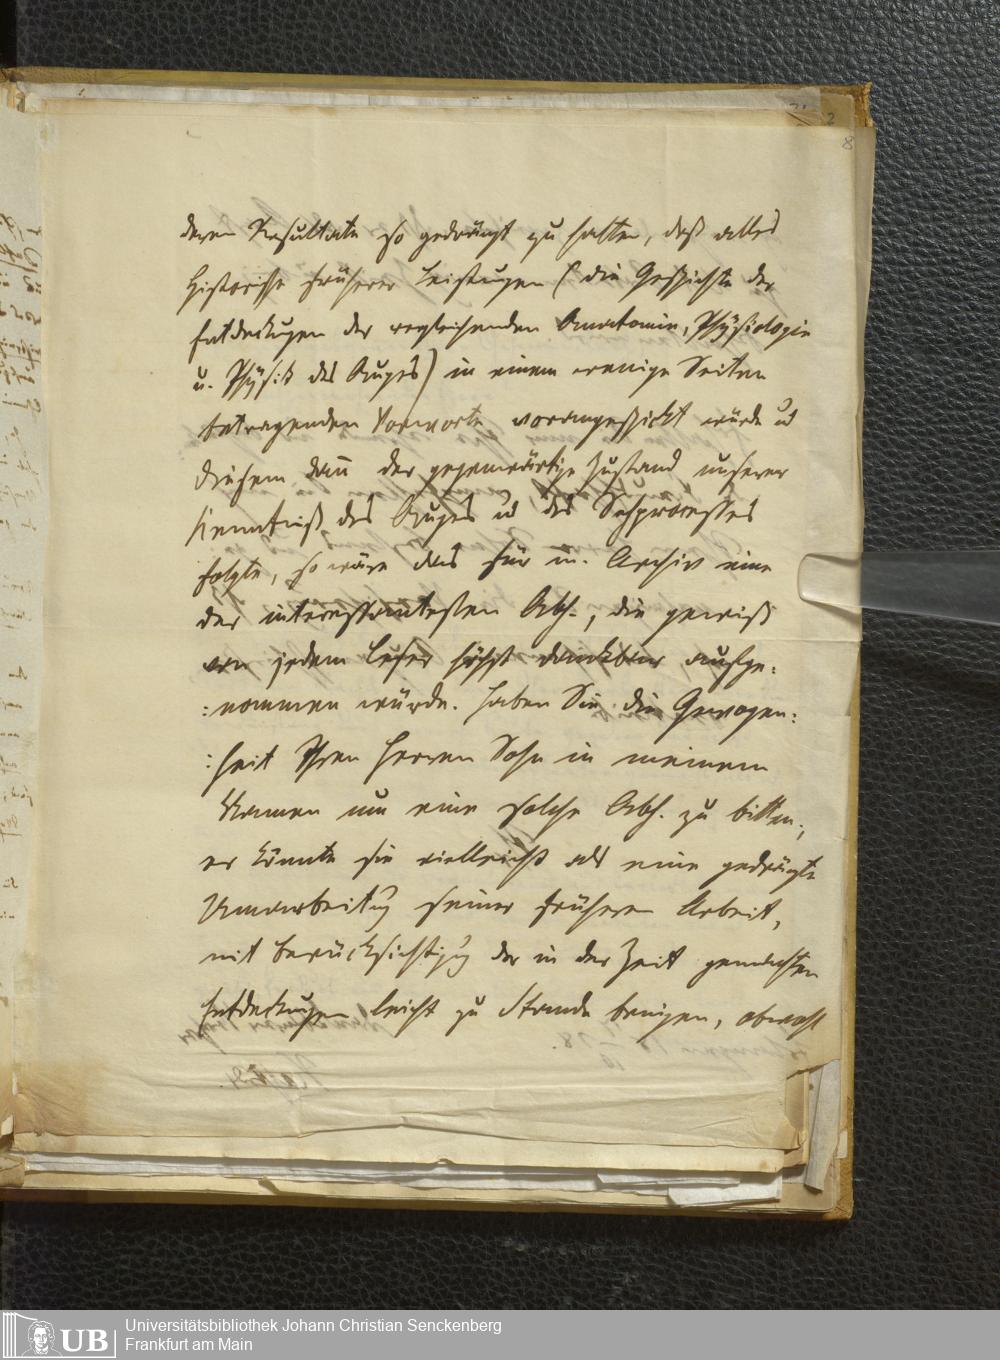 2
8
deren Resultate so gedrängt zu halten, daß alles
Historische früherer Leistungen (die Geschichte der
Entdeckungen der vergleichenden Anatomie, Physiologie
u. Physik des Auges) in einem wenige Seiten
betragenden Vorworte vorangeschickt würde ud
diesem dann der gegenwärtige Zustand unserer
Kenntniß des Auges ud des Sehprocesses
folgte, so wäre das für m. Archiv eine
der interessantesten Abh., die gewiß
von jedem Leser höchst dankbar aufge:
:nommen würde. Haben Sie die Gewogen:
:heit Ihren Herren Sohn in meinem
Namen um eine solche Abh. zu bitten;
er könnte sie vielleicht als eine gedrängte
Umarbeitug seiner früheren Arbeit,
mit Berücksichtigug der in der Zeit gemachten
Entdeckungen leicht zu Stande bringen, obwohl
UB
Universitätsbibliothek Johann Christian Senckenberg
Frankfurt am Main